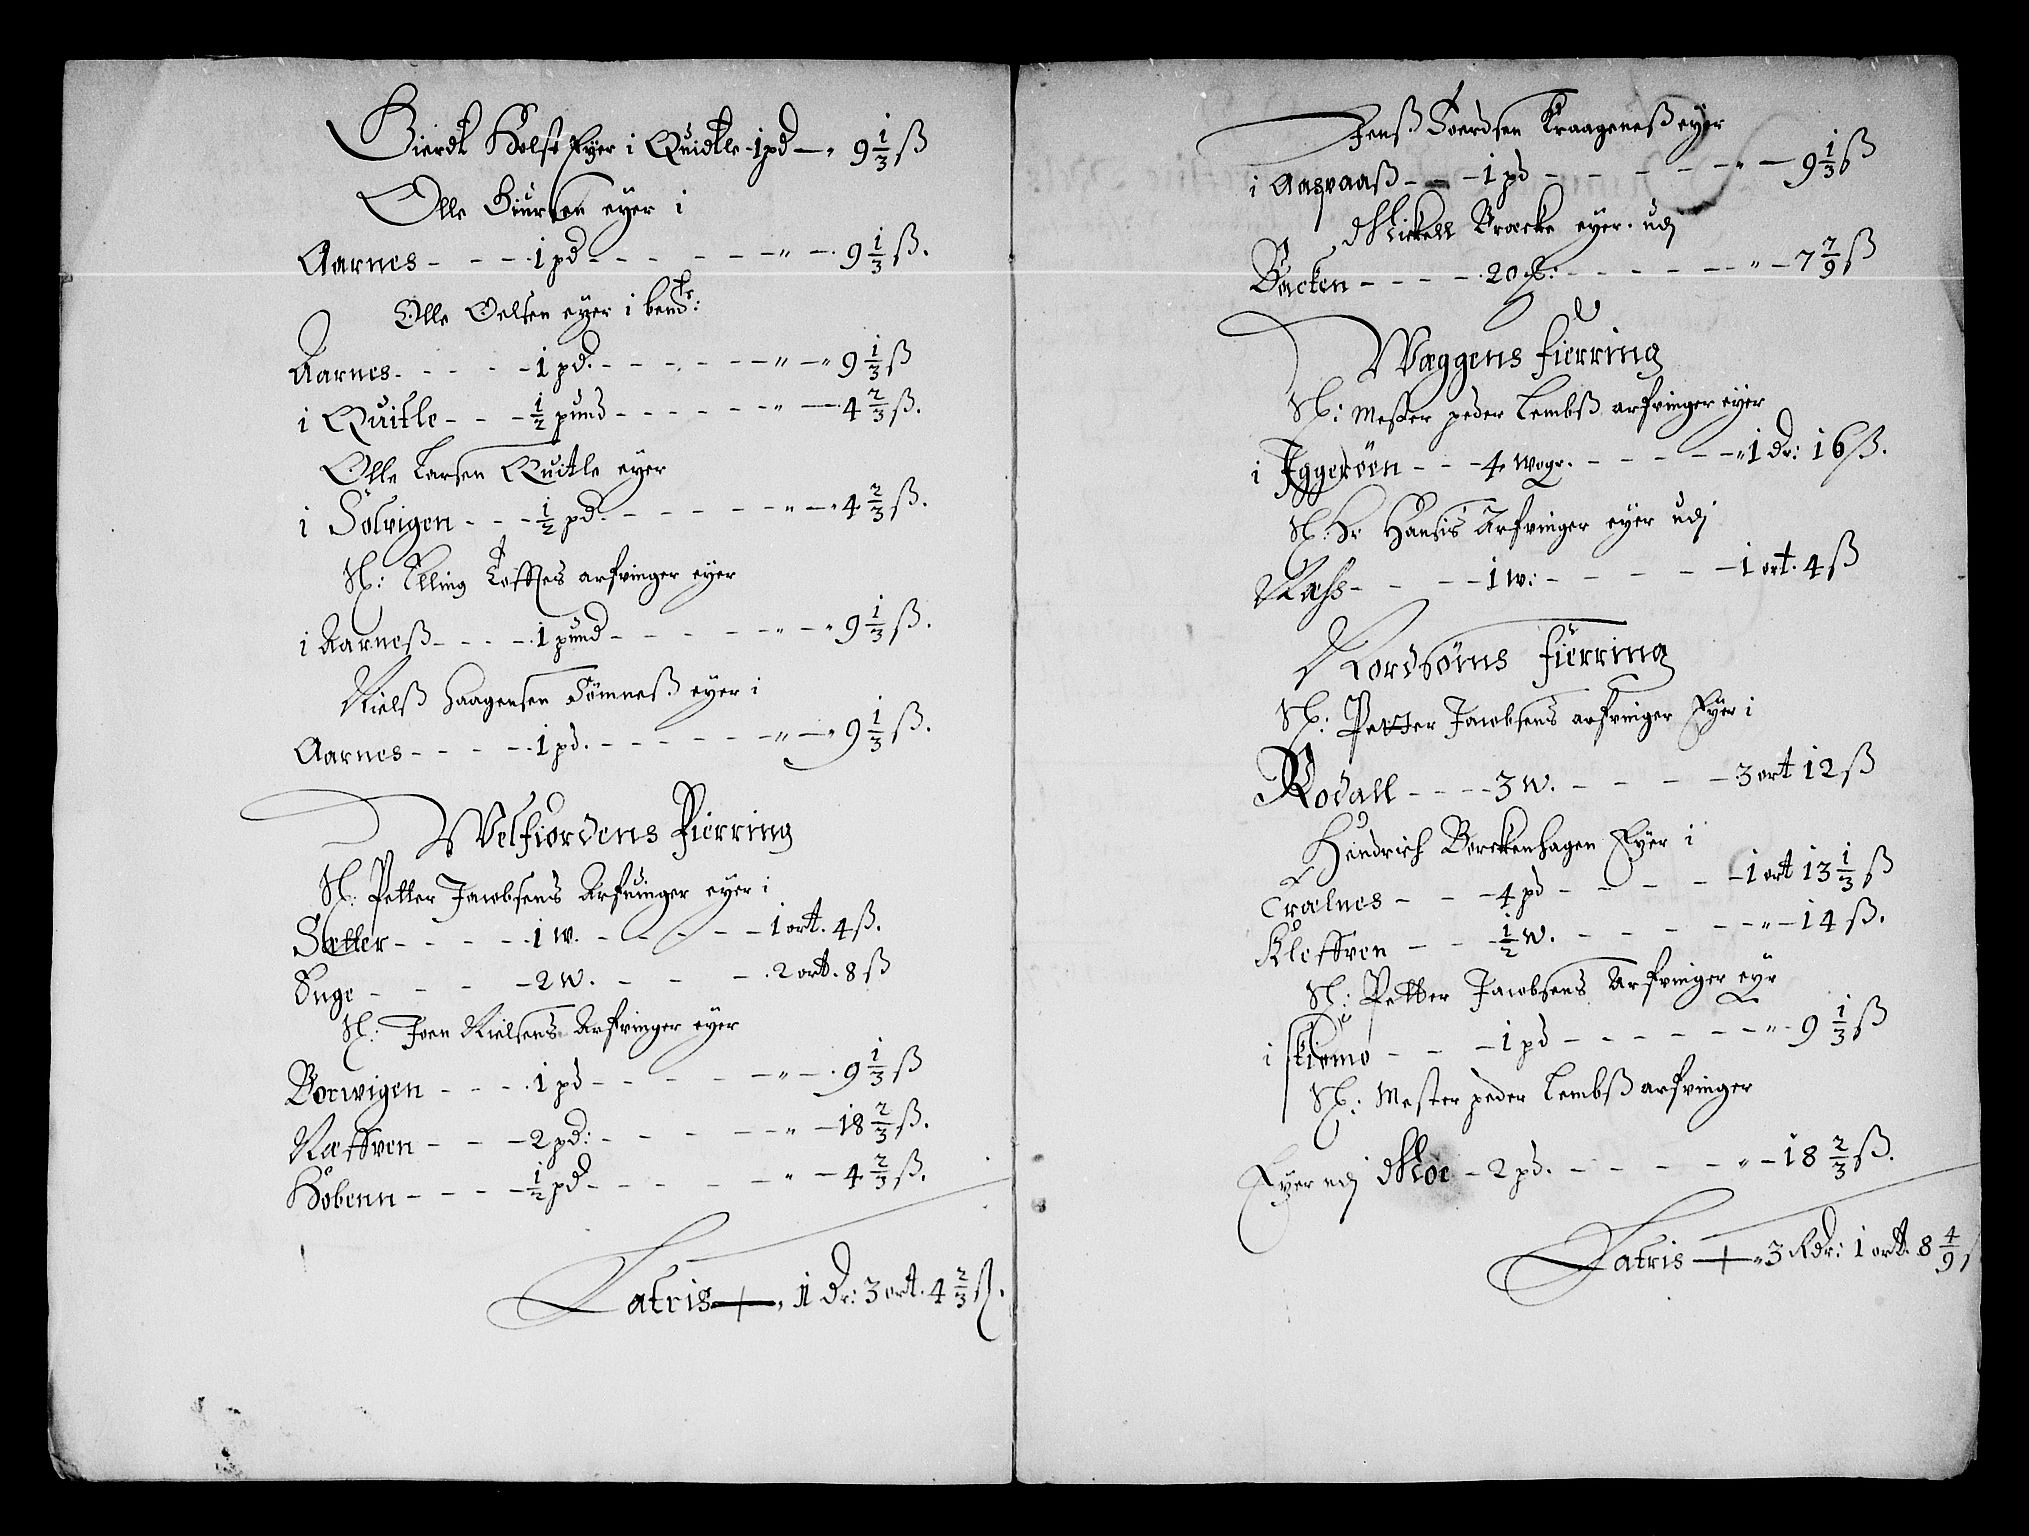 Gierdt Holst Eyer i Quidtle - 1 pd - " 9 1/3 ß
Olle Siursen eyer i
Aarnes - - - 1 pd - - - - - " - 9 1/3 ß.
Olle Oelsen eyer i bend:te
Aarnes - - - - 1 pd. - - - - - " - " 9 1/3 ß
i Quitle - - - 1/2 pund - - - - - " - 4 2/3 ß.
Olle Larsen Quitle eyer
i Solvigen - - - 1/2 pd. - - - - - " - " 4 2/3 ß.
Sl: Elling Toffies arfvinger eyer
i Aarneß - - - - 1 pund - - - - - " - " 9 1/3 ß.
Nielß Haagensen Sömneß eyer i
Aarnes - - - - - 1 pd. - - - - - " - " 9 1/3 ß.
Welfiordens Fierring
Sl: Petter Jacobsens Arfuinger eyer i
Sætter - - - - - 1 w. - - - - - 1 ort. 4 ß.
Snge - - - - 2 w. - - - 2 ort. 8 ß
Sl: Joen Nielsens Arfvinger eyer
Borwigen - - - - 1 pd - - - - - " - 9 1/3 ß
Næffven - - - 2 pd: - - - - - " - 18 2/3 ß.
Hobenn - - - - 1/2 pd - - - - - " - 4 2/3 ß.
Latris — " 1 dr: 3 ort. 4 2/3 ß.
Jenß Soerdsen Kraageneß eyer
i Aaspaaß - - - 1 pd - - - - - " - 9 1/3 ß
Mickell Bræcke eyer. udj
Backen - - - - 20 - - - - - " - 7 7/9 ß
Wæggens fierring
Sl: Mester peder Lembß arfvinger eyer
i Yggeröen - - - 4 wogr. - - - - - " 1 dr: 16 ß.
Sl: Hr Hansis Arfvinger eyer udj
Næss - - - - 1 w: - - - - - 1 ort. 4 ß
Nordhöms fierring
Sl: Petter Jacobsens arfvinger Eyer i
Rodall - - - - 3 w. - - - - 3 ort 12 ß
Hendrich Borckenhagen Eyer i
Trælnes - - - 4 pd - - - - - 1 ort 13 1/3 ß
Kleffven - - - 1/2 w. - - - - - " - 14 ß.
Sl: Petter Jacobsens Arfvinger eyr
i skiomo - - - 1 pd - - - - - " - 9 1/3 ß
Sl: Mester peder Lembß arfvinger
Eyer udj Moe - 2 pd. - - - - - " - 18 2/3 ß.
Latris — " 3 Rdr: 1 ort. 8 4/9 ß